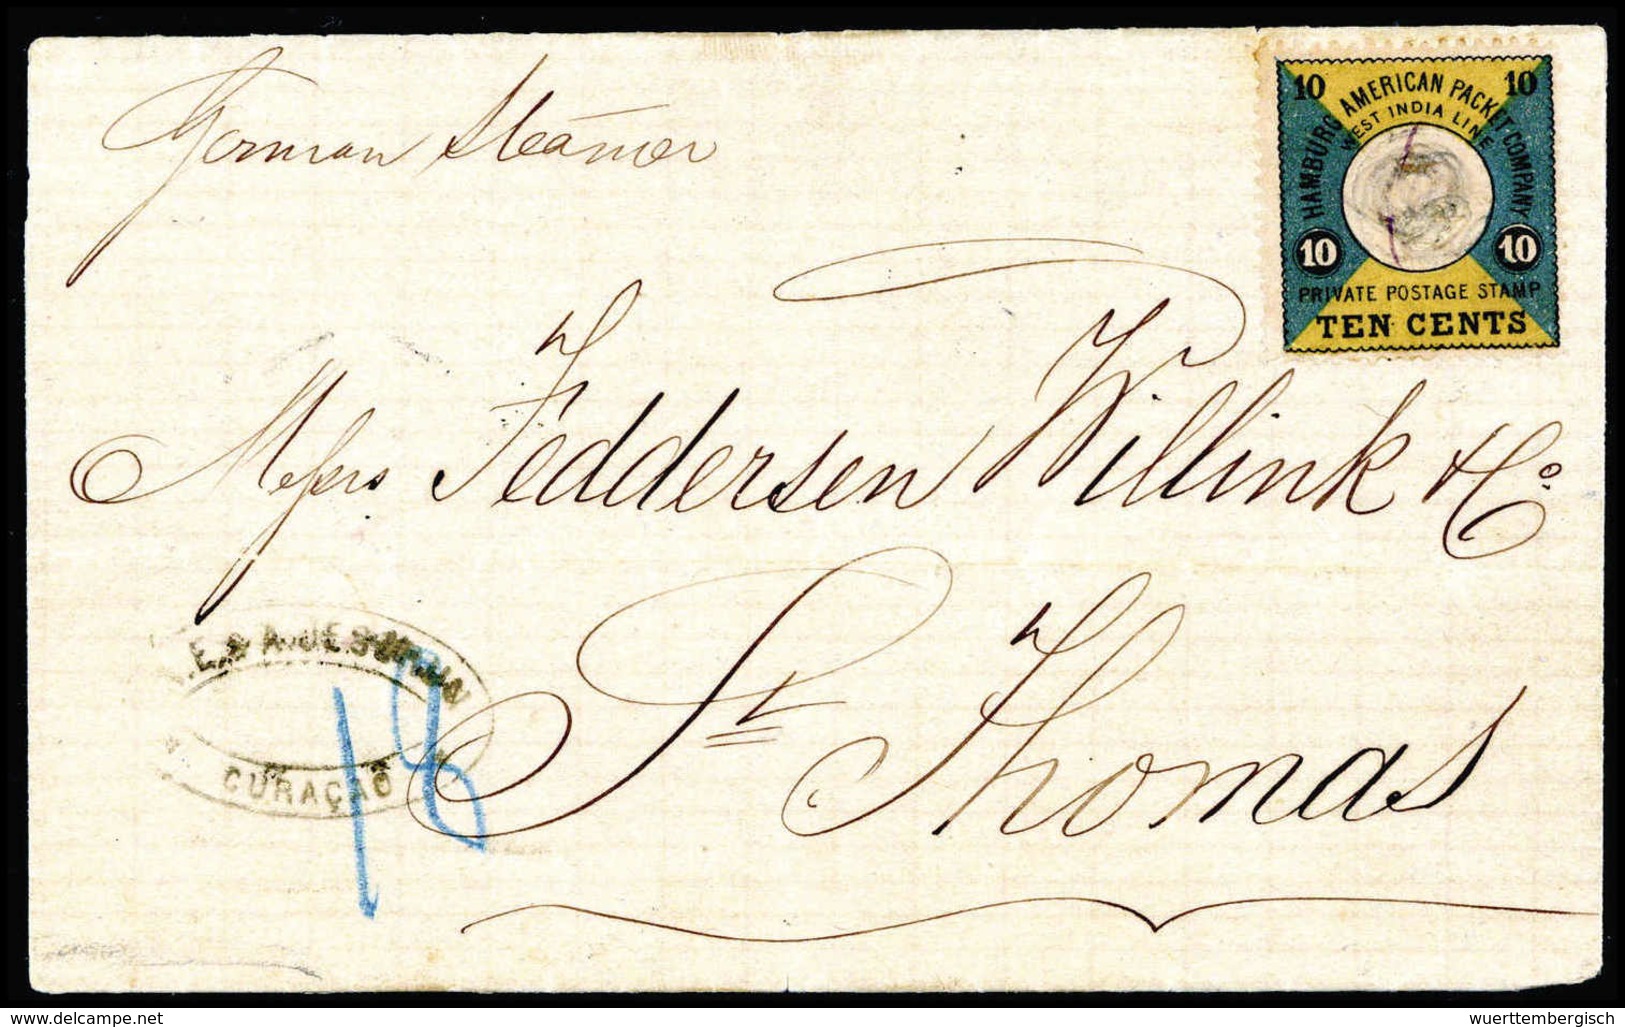 German Steamer
10 10
HAMBURG AMERICAN PACKET COMPANY
WEST INDIA LINE
10 10
PRIVATE POSTAGE STAMP
TEN CENTS
Messrs Feddersen Willink & Co.
St Thomas
E. & A. JESURUN
CURAÇAO
18
www.delcampe.net
wuerttembergisch